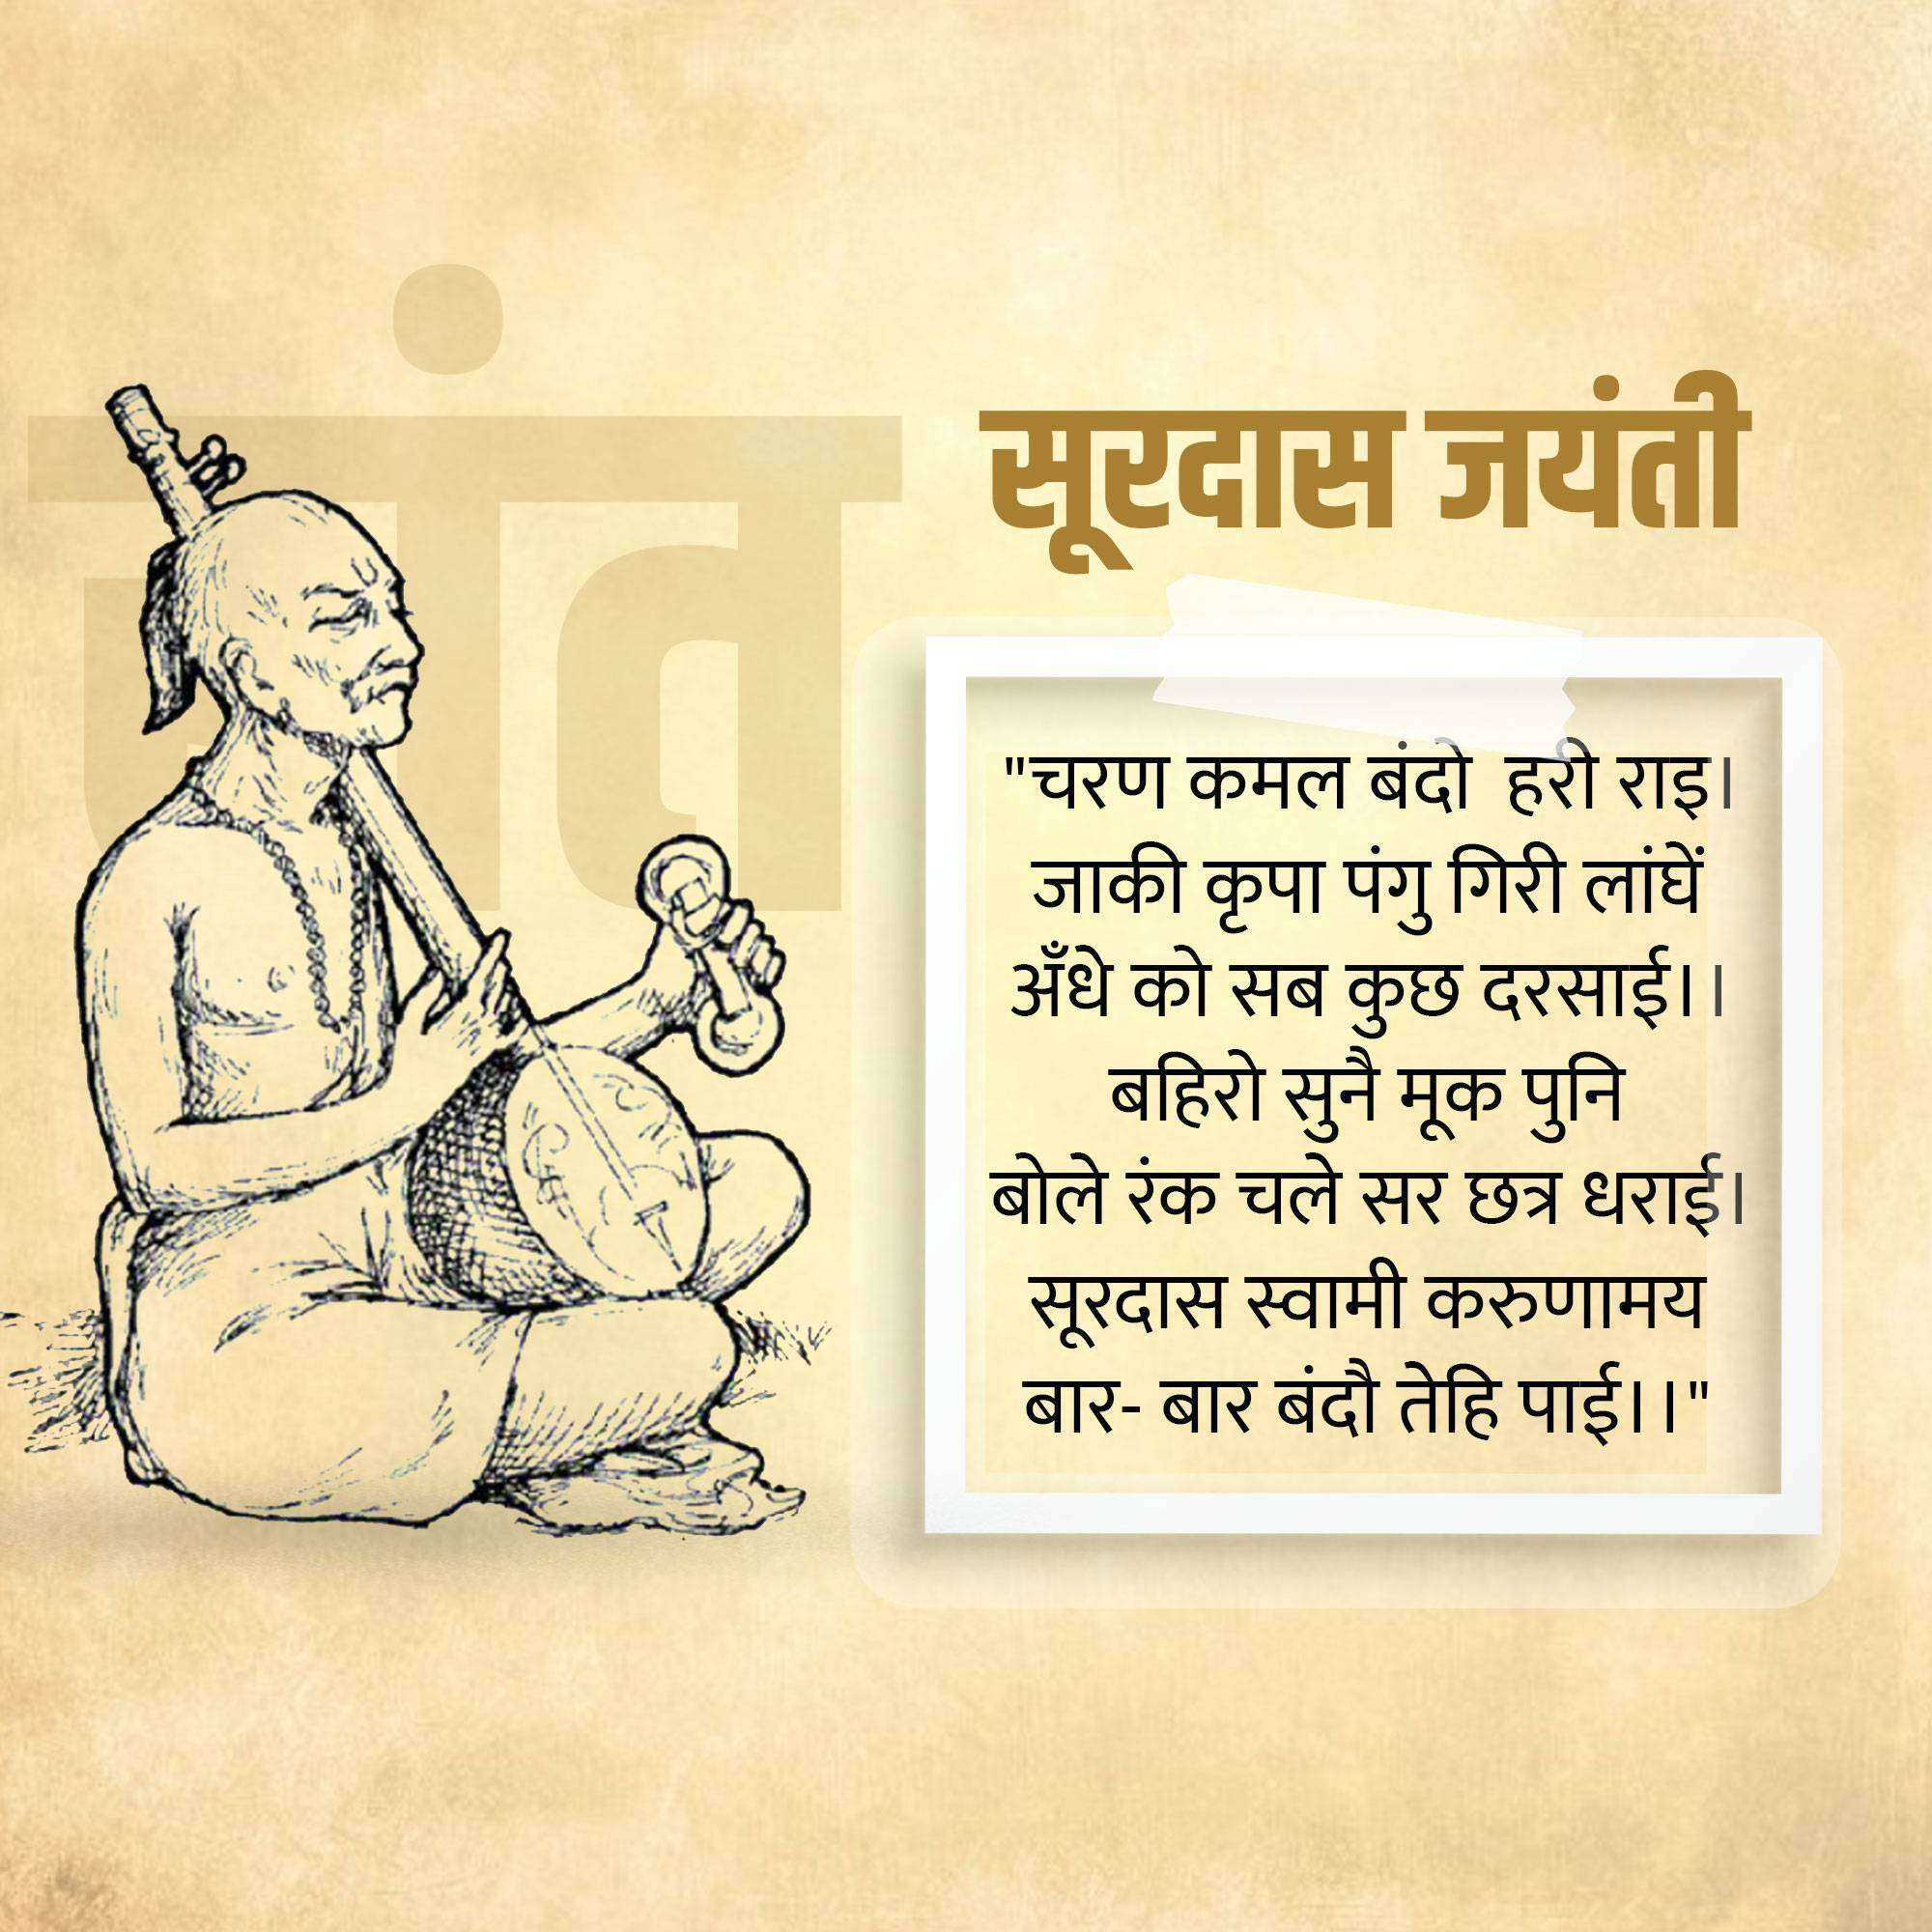 संत
सूरदास जयंती
"चरण कमल बंदो हरी राइ।
जाकी कृपा पंगु गिरी लांघें
अँधे को सब कुछ दरसाई।।
बहिरो सुनै मूक पुनि
बोले रंक चले सर छत्र धराई।
सूरदास स्वामी करुणामय
बार- बार बंदौ तेहि पाई।।"